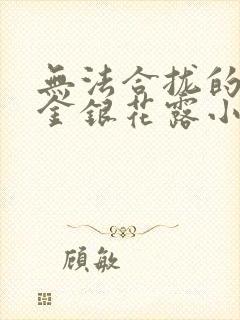 無法合拢的
金銀花露小
顾敏